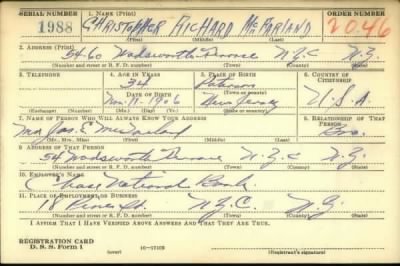 SERIAL NUMBER 1. NAME (Print) ORDER NUMBER
1988 CHRISTOPHER RICHARD McFARLAND 2046
(First) (Middle) (Last)
2. ADDRESS (Print)
54-60 Wadsworth Terrace N.Y.C N.Y.
(Number and street or R. F. D. number) (Town) (County) (State)
3. TELEPHONE 4. AGE IN YEARS 5. PLACE OF BIRTH 6. COUNTRY OF CITIZENSHIP
34 Paterson
DATE OF BIRTH (Town or county)
Nov. 11 1906 New Jersey U.S.A
(Exchange) (Number) (Mo.) (Day) (Yr.) (State or country)
7. NAME OF PERSON WHO WILL ALWAYS KNOW YOUR ADDRESS 8. RELATIONSHIP OF THAT PERSON
Jas. E McFarland Bro.
(Mr., Mrs., Miss) (First) (Middle) (Last)
9. ADDRESS OF THAT PERSON
54 Wadsworth Terrace N.Y.C N.Y.
(Number and street or R. F. D. number) (Town) (County) (State)
10. EMPLOYER'S NAME
Chase National Bank
11. PLACE OF EMPLOYMENT OR BUSINESS
18 Pine St. N.Y.C. N.Y.
(Number and street or R. F. D. number) (Town) (County) (State)
I AFFIRM THAT I HAVE VERIFIED ABOVE ANSWERS AND THAT THEY ARE TRUE.
REGISTRATION CARD
D. S. S. Form 1 (over) 16—17105 (Registrant's signature)